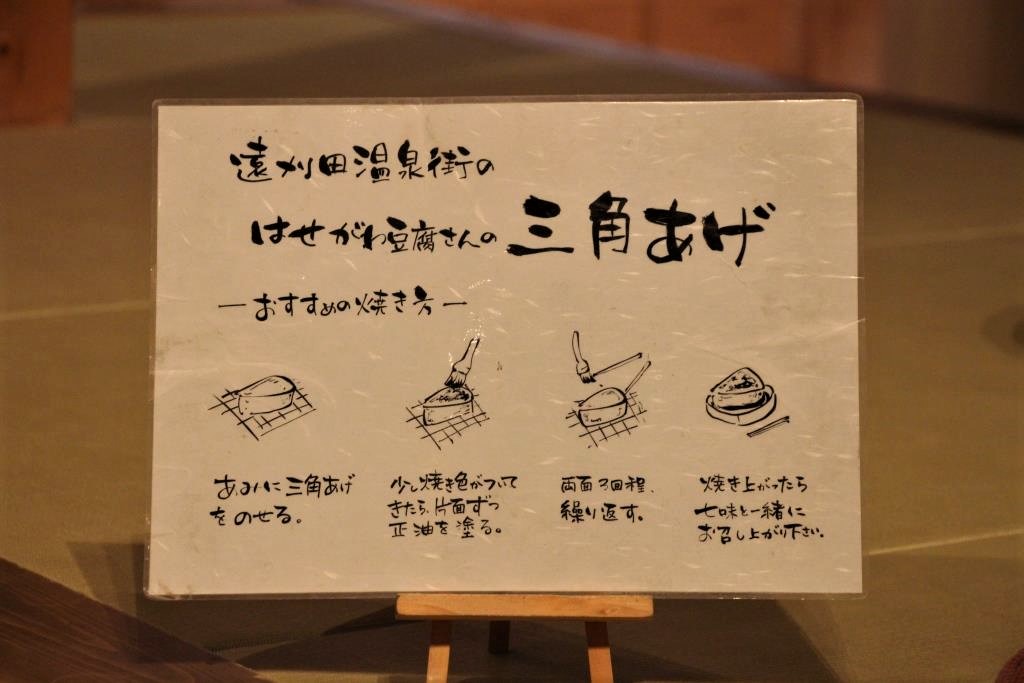 遠刈田温泉街の
はせがわ豆腐さんの三角あげ
ーおすすめの焼き方ー
あみに三角あげ
をのせる。
少し焼き色がついて
きたら、片面ずつ
正油を塗る。
両面3回程、
繰り返す。
焼き上がったら
七味と一緒に
お召し上がり下さい。